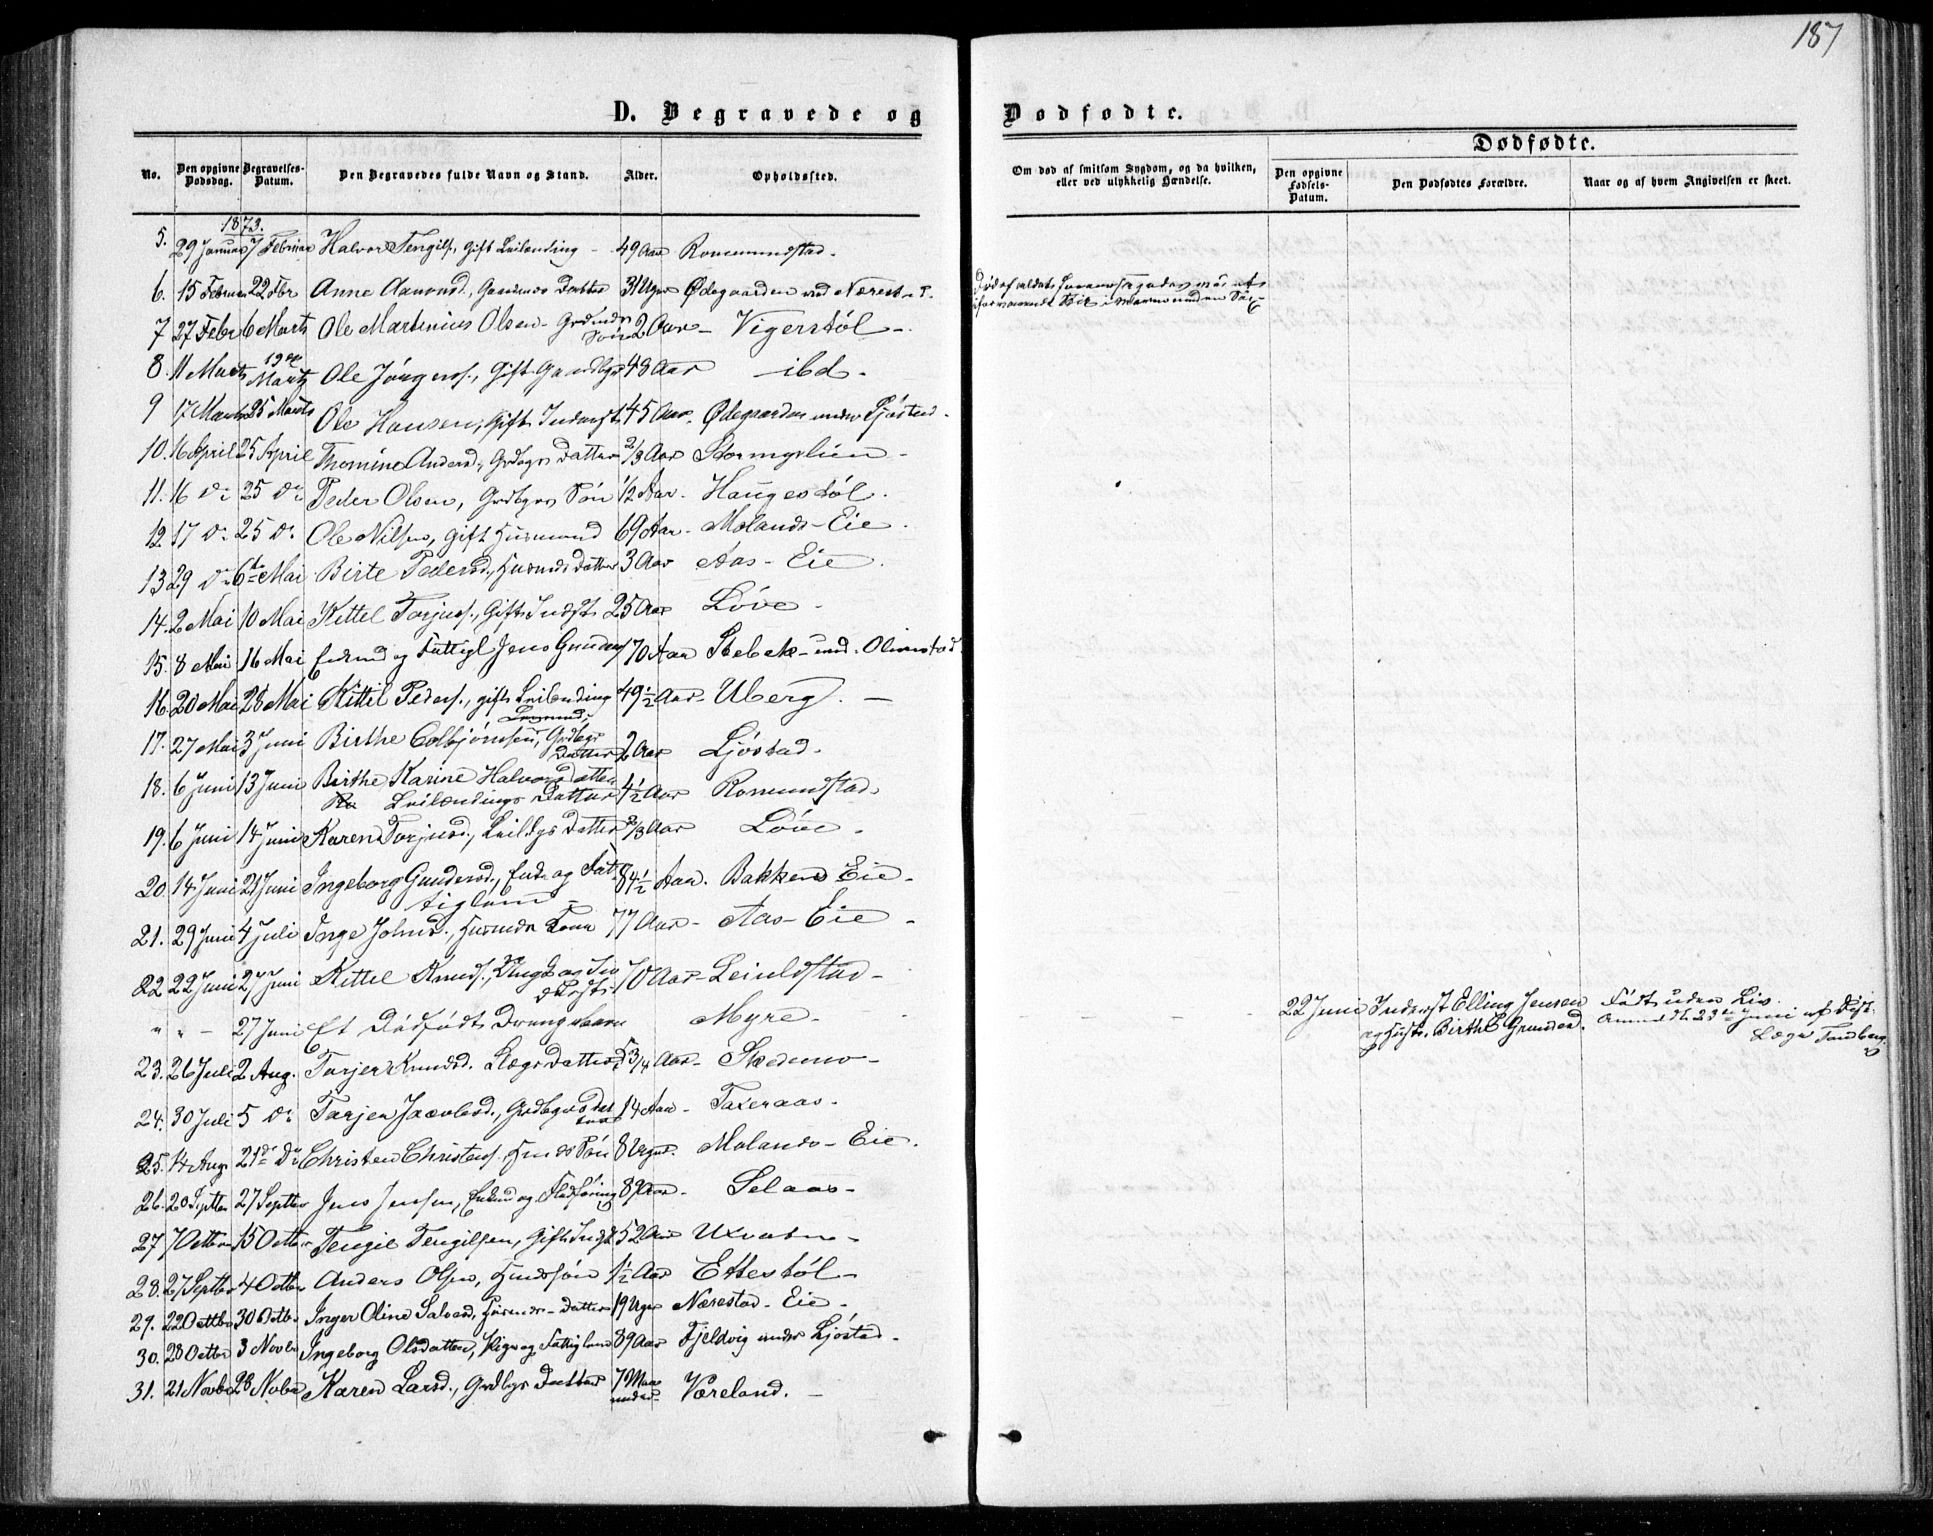 187
D. Begravede og Dødfødte.
No. Den opgivne Dødsdag. Begravelses-Datum. Den Begravedes fulde Navn og Stand. Alder. Opholdssted. Om død af smitsom Sygdom, og da hvilken, eller ved ulykkelig Hændelse. Dødfødte. Den opgivne Fødsels-Datum. Den Dødfødtes Forældre. Naar og af hvem Angivelsen er skeet.
1873.
5. 29 Januar 7 Februar Halvor Tengilss., Gift Leilending 49 Aar Romundstad.
6. 15 Februar 22 Fbr Anne Aanonsd., Datter 31 Uger Ødegaarden und Nærestad.
7 27 Febr 6 Marts Ole Martinius Olsen Søn 2 Aar Vigerstøl
8. 11 Marts 19de Marts Ole Jørgens., Gift Gaardbgr 43 Aar ibd.
9 17 Marts 25 Marts Ole Hansen, Gift Inderst 45 Aar. Ødegaarden under Ljøstad.
10. 16 April 25 April Thomine Andersd., Grdbgrs Datter 2/3 Aar Stormyrlien
11. 16 Do 25 Do Peder Olsen, Grdbgrs Søn 1/2 Aar. Haugestøl.
12. 17 Do 25 Do Ole Nilsen, gift Husmand 69 Aar. Molands-Eie.
13 29 Do 6te Mai Birte Pedersd., Husmds Datter 3 Aar Aas-Eie.
14. 2 Mai 10 Mai Kittel Torjuss., Gift Indst 25 Aar Løve
15. 8 Mai 16 Mai Enkmd og Fattigl Jens Gunders 70 Aar Stebek und. Olimstad
16. 20 Mai 28 Mai Kittil Peders., gift Leilending 49 1/2 Aar Uberg.
17. 27 Mai 3 Juni Birthe Colbjørnsen, Grdbgr Datter 2 Aar Ljøstad.
18. 6 Juni 13 Juni Birthe Karine Halvorsdatter
Leilændings Datter 4 1/2 Aar Romundstad.
19. 6 Juni 14 Juni Karen Torjusd., Leildgs Datter 2/3 Aar Løve.
20. 14 Juni 21 Juni Ingeborg Gundersd., Enke og Fat-
tiglem 84 1/2 Aar. Bakkens Eie.
21. 29 Juni 4 Juli Inge Johnsd., Husmds Kone 77 Aar Aas-Eie
22 22 Juni 27 Juni Kittel Knuds., Ungk og In-
derst 70 Aar Leivldstad
" " 27 Juni Et Dødfødt Drengebarn Myre 22 Juni Inderst Elling Jensen
og Hustr. Birthe Gundersd. Født uden Liv.
Anmeldt 23de Juni af Distr.
Læge Tandberg
23. 26 Juli 2 Aug. Torjer Knudsd. Lægs Datter 53/4 Aar Skedsmo
24. 30 Juli 5 Do Torjer Jacobsd., Grdbgrs Datter 14 Aar Taxeraas.
25. 14 Aug 21de Do Christen Christens., Hmds Søn 8 Uger. Molands-Eie.
26. 20 Septbr 27 Septbr Jens Jensen, Enkmd og Fladføring 89 Aar Selaas
27 7 Octbr 15 Octbr Tengil Tengilsen, Gift Indst 52 Aar Uxvatn
28. 27 Septbr 4 Octbr Anders Olsen, Hmdssøn 1 1/2 Aar Ettestøl
29. 22 Octbr 30 Octbr. Inger Oline Salvesd, Husmds-Datter 19 Uger Nærestad-Eie
30. 28 Octbr 3 Novbr Ingeborg Olsdatter, Pige og Fattiglem 89 Aar Fjeldvig under Ljøstad
31. 21 Novbr 28 Novbr Karen Larsd., Grdbgs Datter 7 Maaneder Væreland.